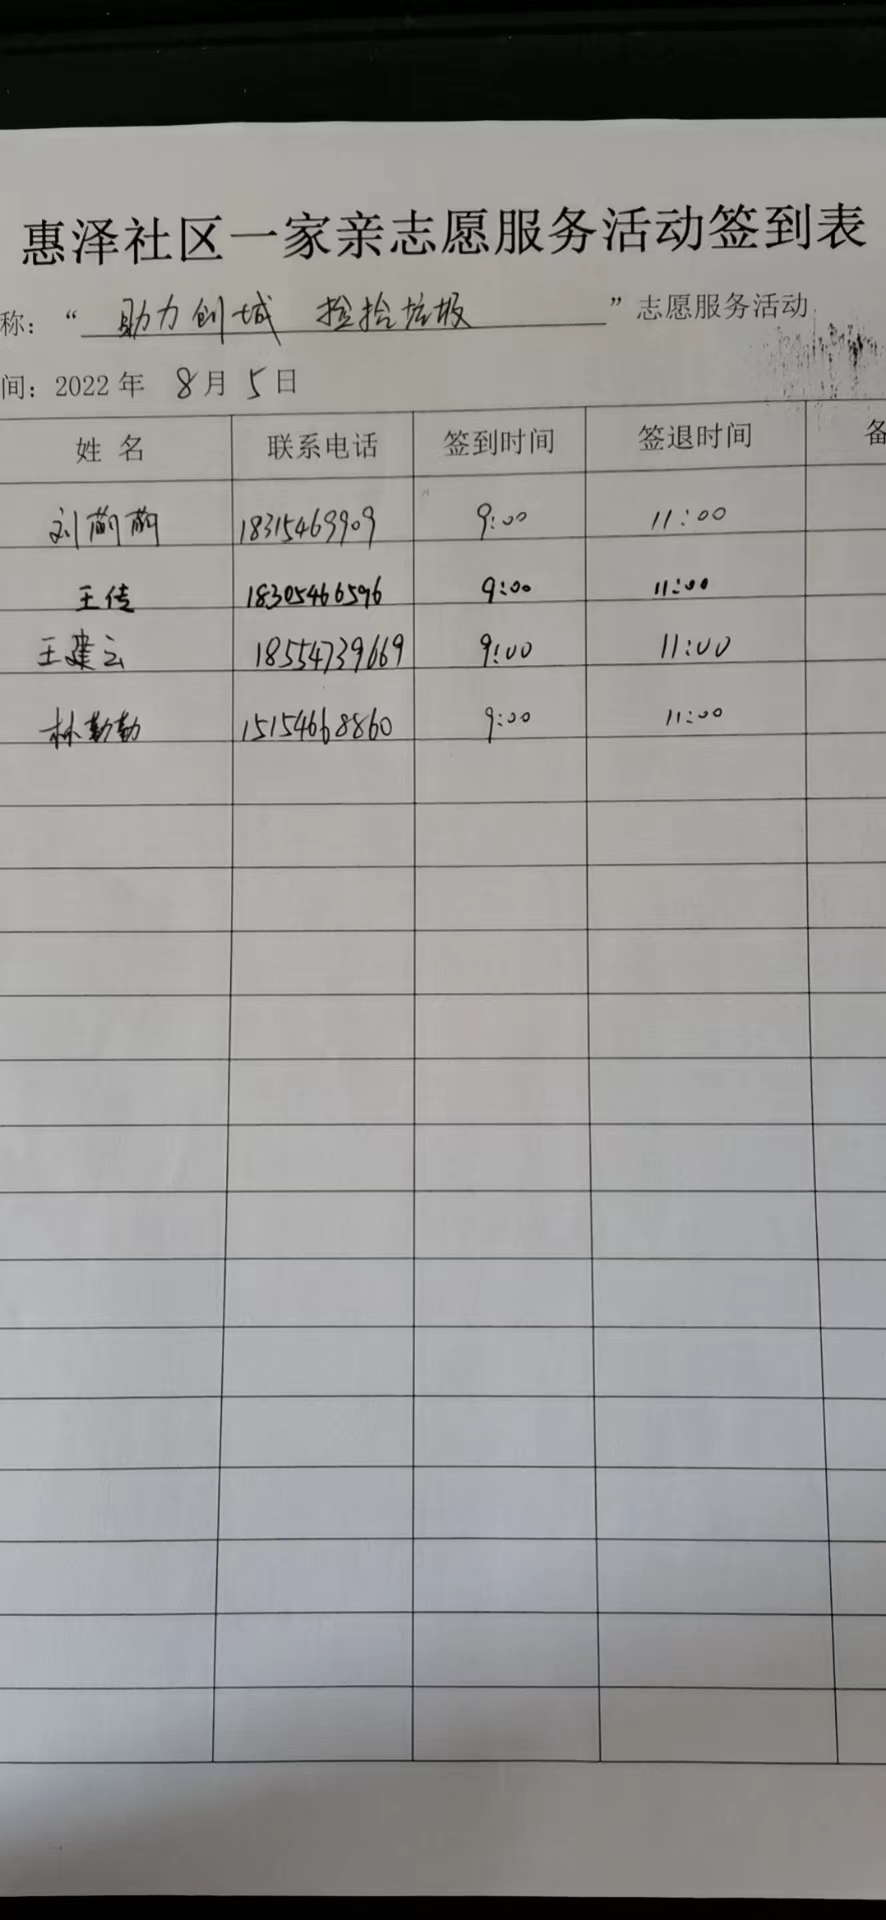 惠泽社区一家亲志愿服务活动签到表
称：“助力创城 捡拾垃圾”志愿服务活动
间：2022年 8月5日
姓 名 联系电话 签到时间 签退时间 备
刘蔺蔺 18315469909 9:00 11:00
王传 18305466596 9:00 11:00
王建云 18554739669 9:00 11:00
林勤勤 15154668860 9:00 11:00